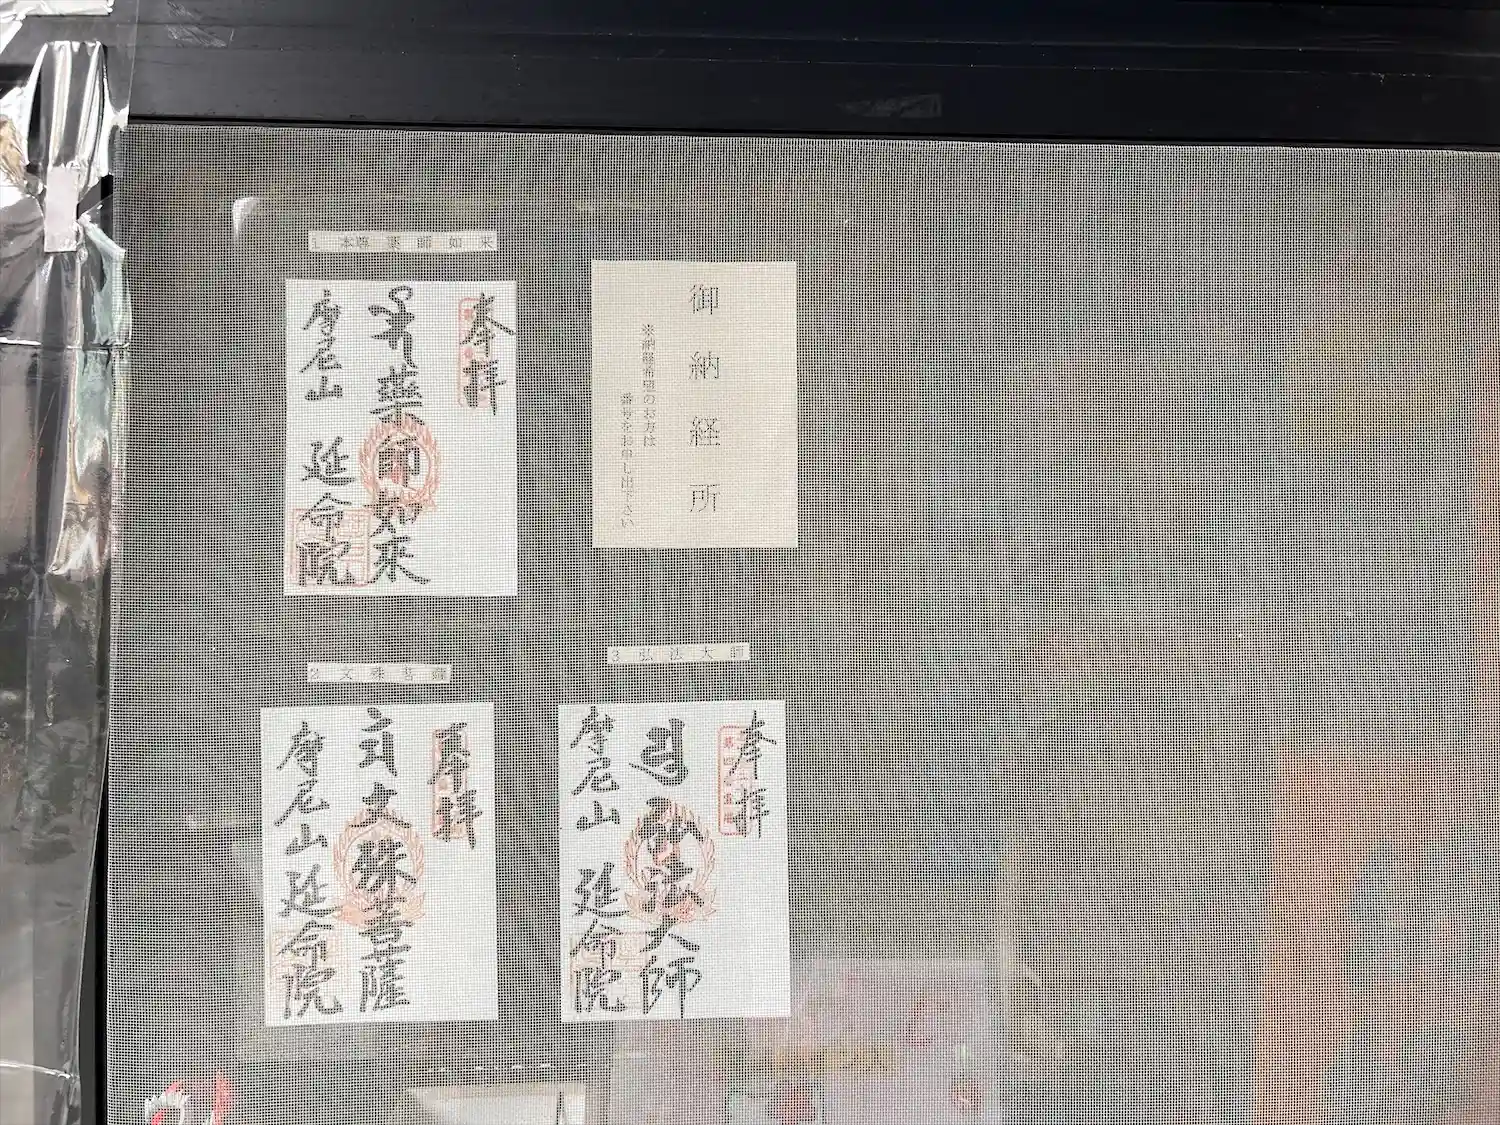 1 本尊薬師如来
奉拝
薬師如来
摩尼山 延命院
御納経所
※納経希望のお方は
番号をお申し出下さい
2 文殊菩薩
奉拝
文殊菩薩
摩尼山 延命院
3 弘法大師
奉拝
弘法大師
摩尼山 延命院